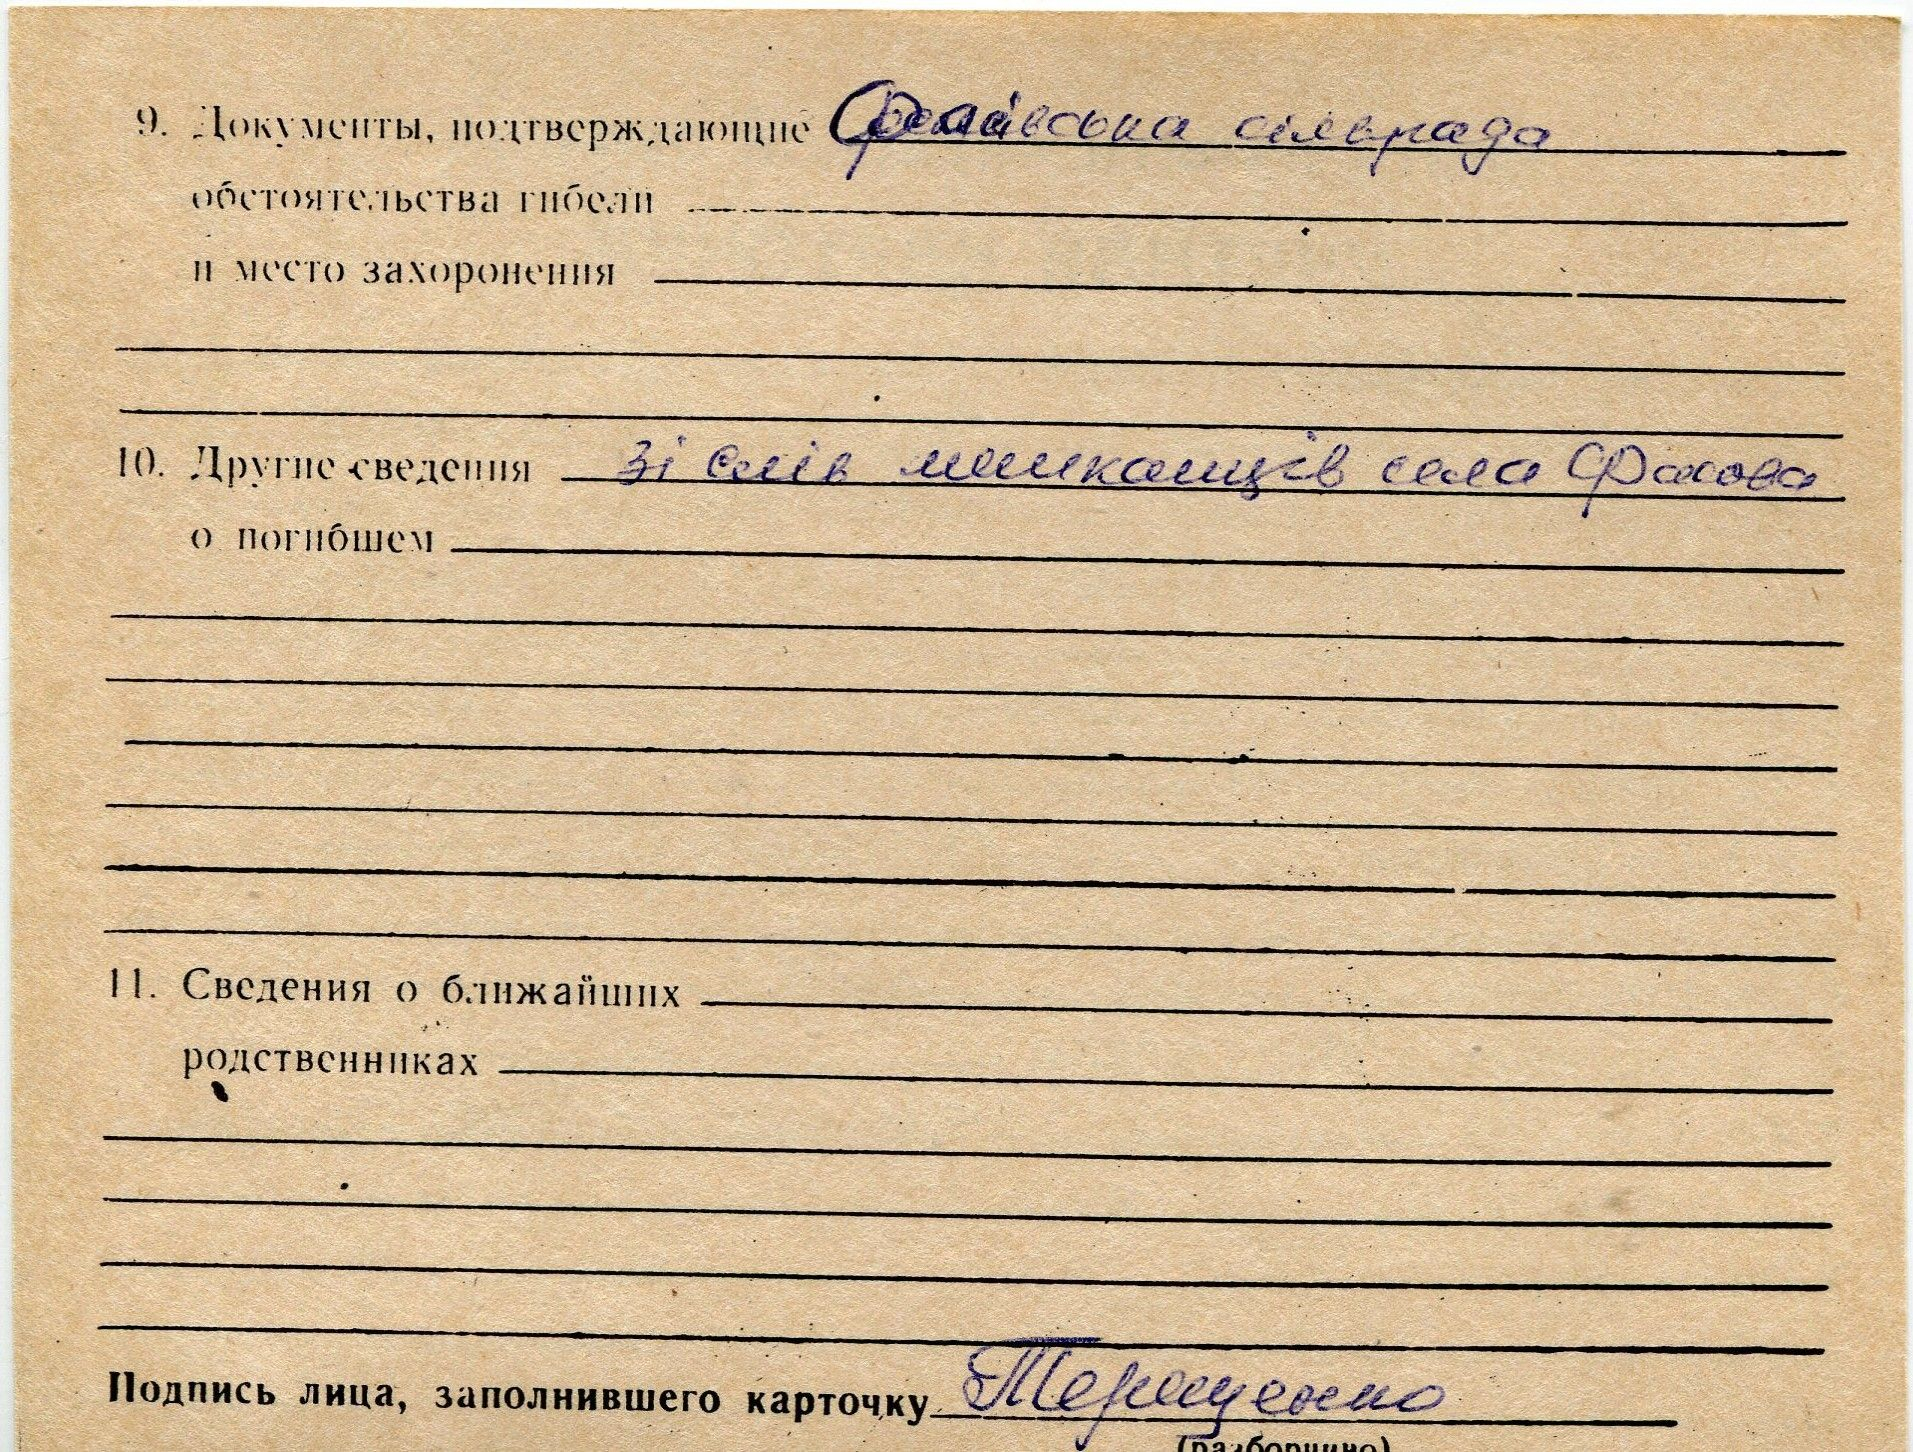 9. Документы, подтверждающие сільрада
обстоятельства гибели
и место захоронения
10. Другие сведения зі слів мешканців села
о погибшем
11. Сведения о ближайших
родственниках
Подпись лица, заполнившего карточку Терещенко
(разборчиво)